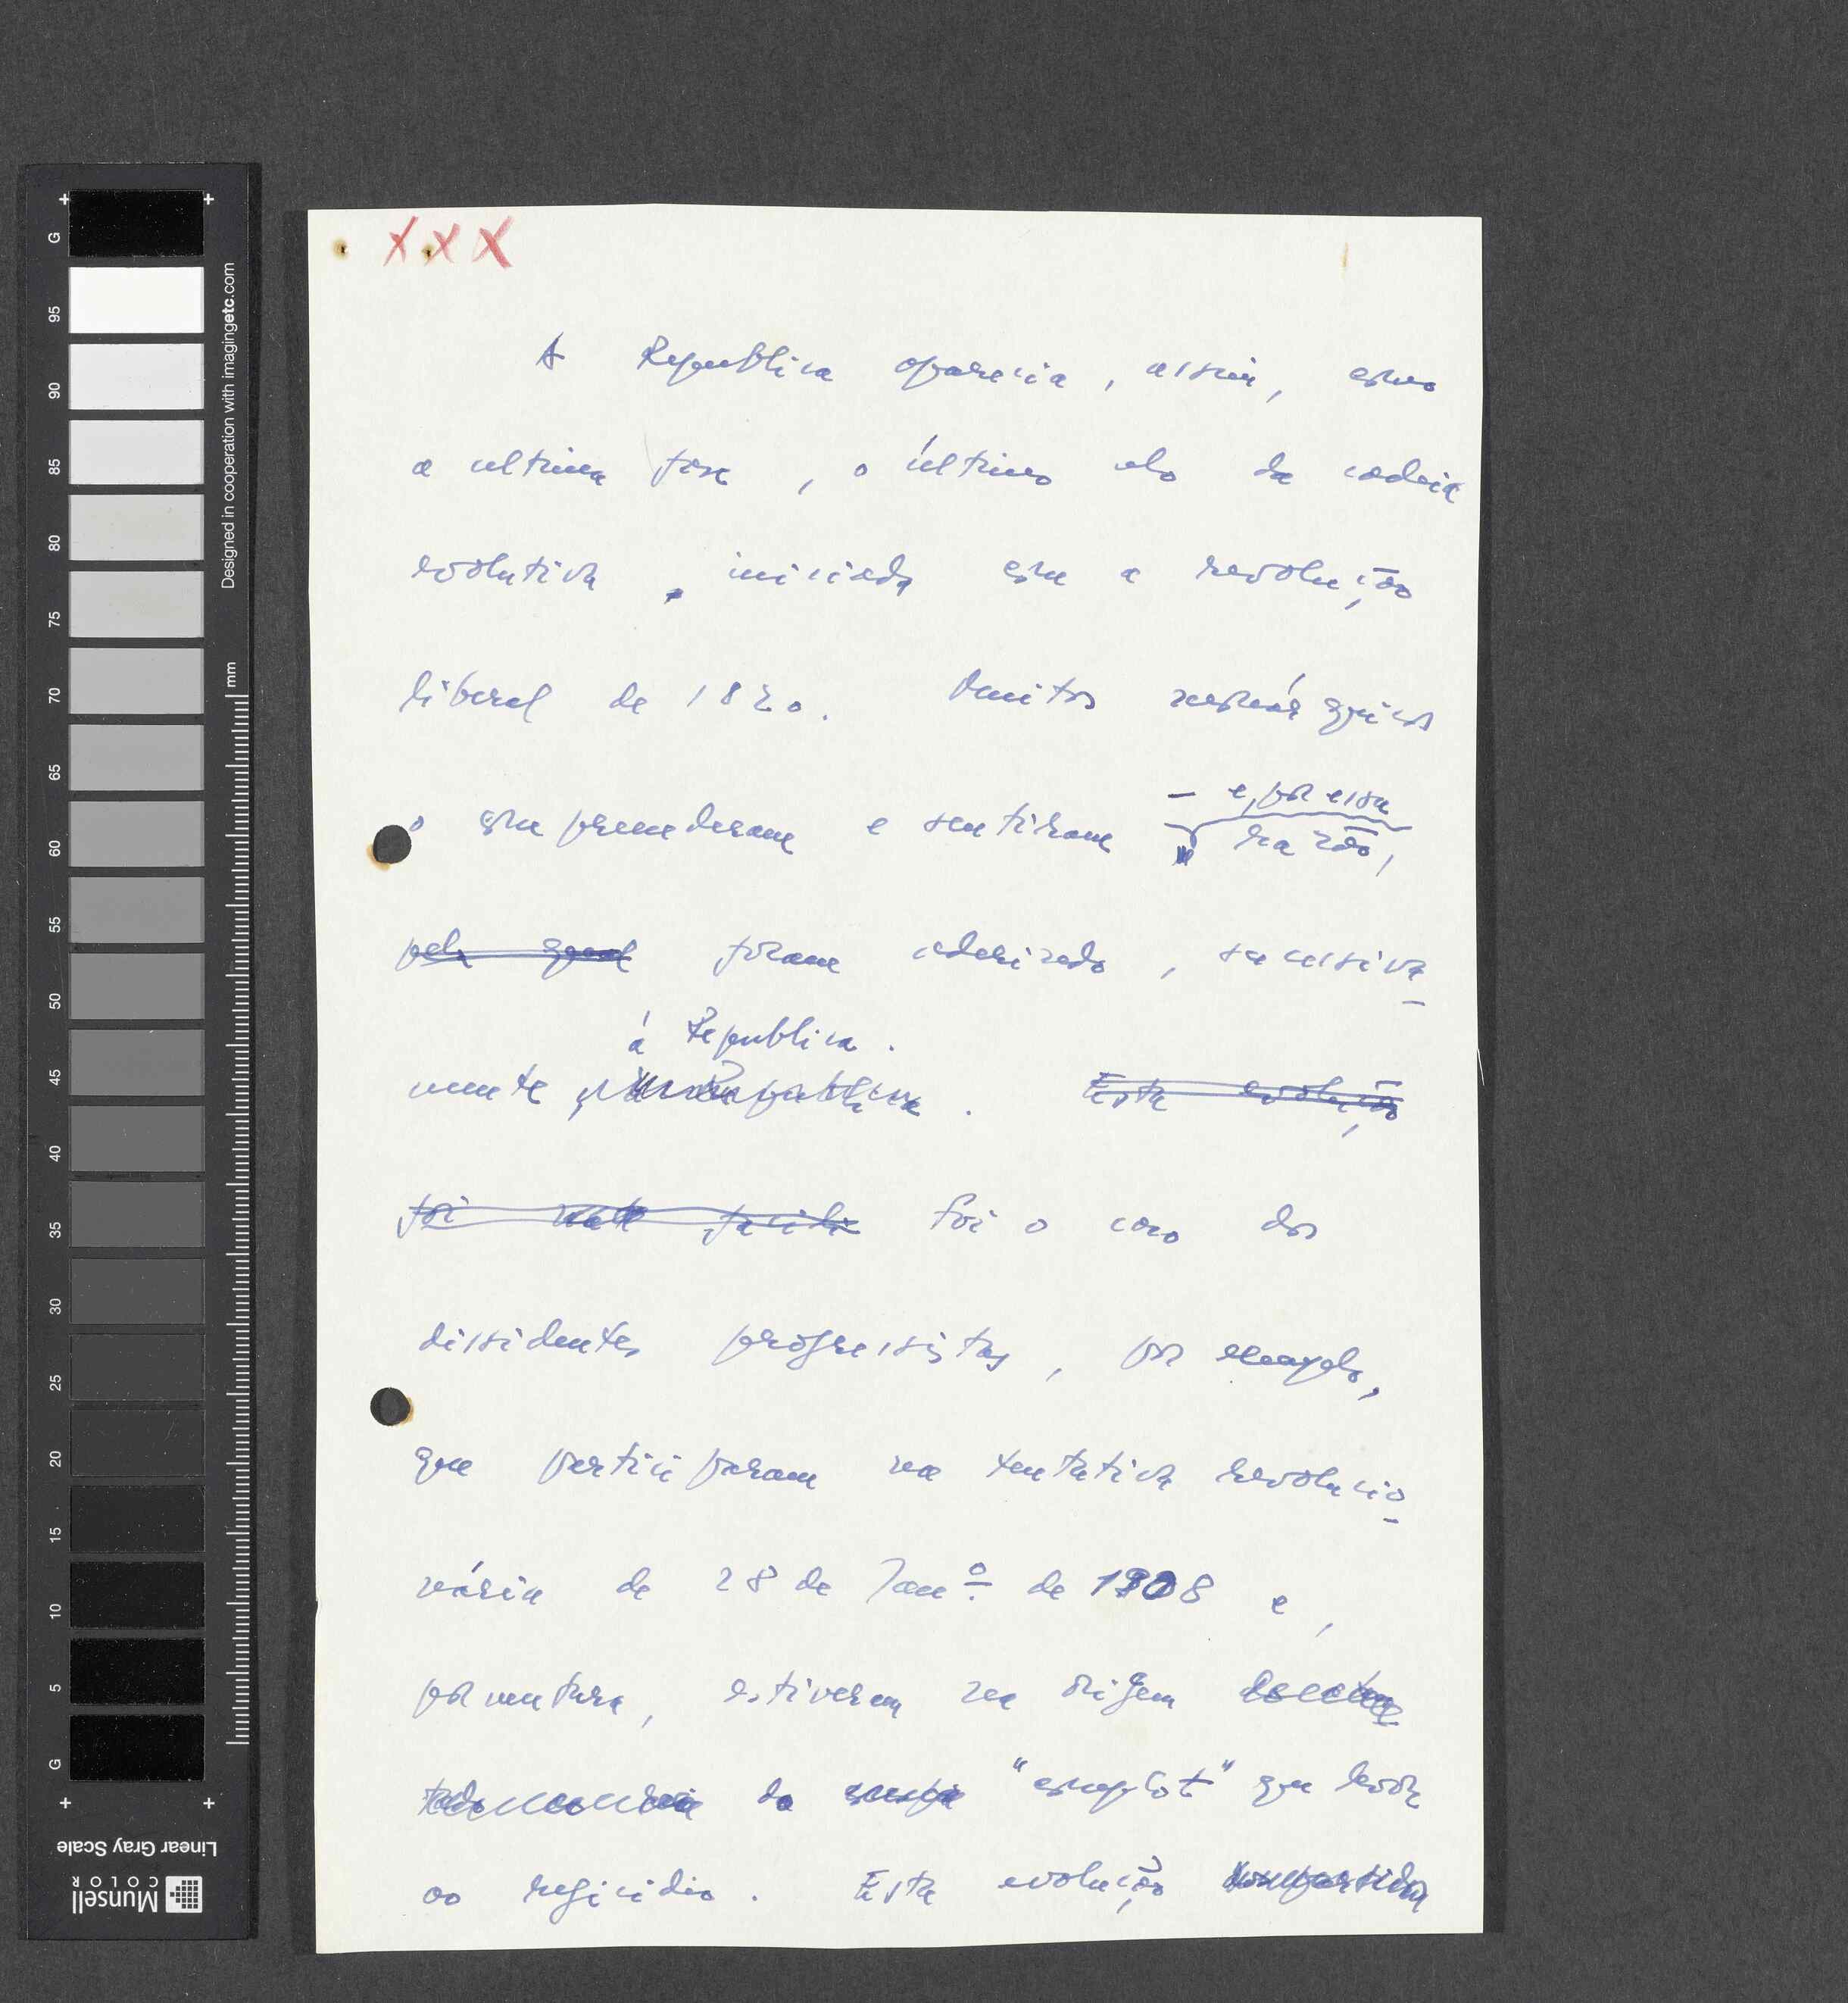 XXX
A Republica aparecia, assim, como
a ultima fase, o último elo da cadeia
evolutiva, iniciada com a revolução
liberal de 1820. Muitos monárquicos
– e, por essa
o compreenderam e sentiram razão,
pela qual foram aderindo, sucessiva-
á Republica.
mente Republica. Esta evolução
foi facili foi o caso dos
dissidentes progressistas, por exemplo,
que participaram na tentativa revolucio-
nária de 28 de Janº. de 1908 e,
porventura, estiveram na origem
do "complot" que levou
ao regicidio. Esta evolução
G
95
90
85
80
75
70
65
60
55
50
45
40
35
30
25
20
15
10
5
G
Designed in cooperation with imagingetc.com
mm
Linear Gray Scale
Munsell
COLOR